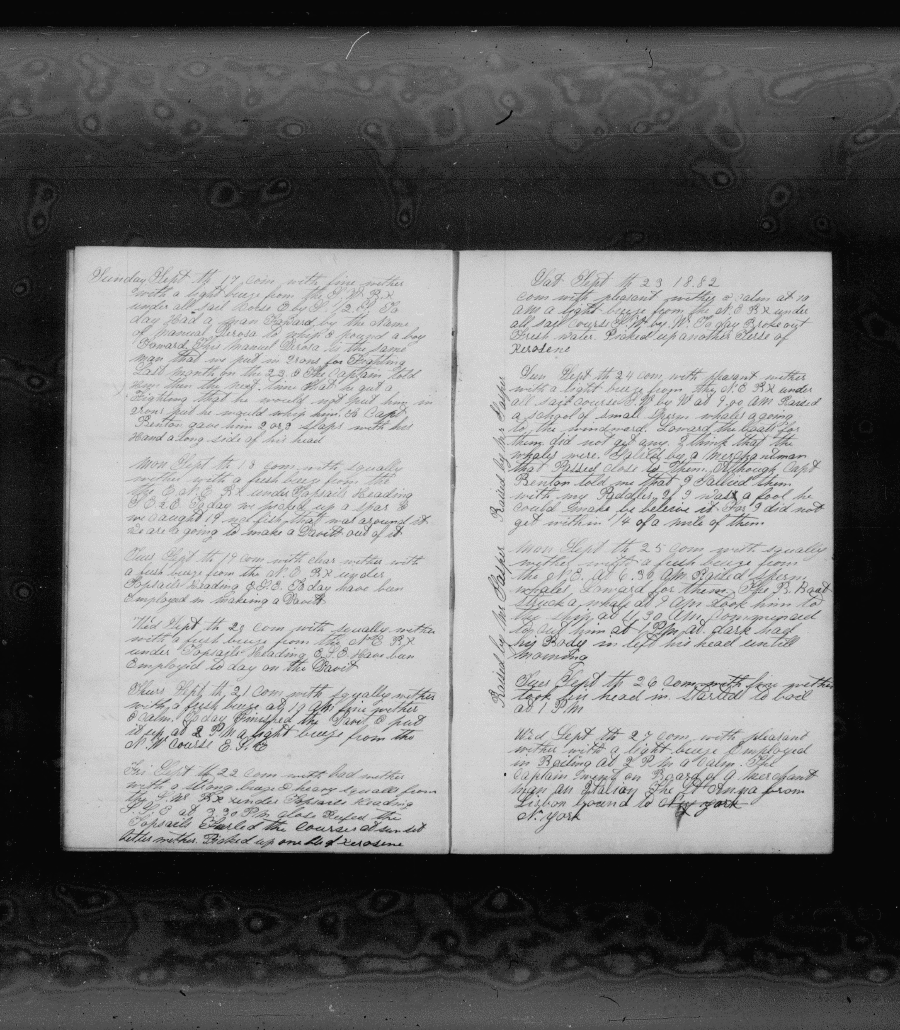 Sunday Sept th 17 Com with fine wether
with a light breze from the S W B x
under all sail Corse E by S 1/2 S To
day Had a man Foward by the name
of Manuel Perosa whip & pound a boy
Foward This Manuel Perosa is the same
man that we put in Irons for Fighting
Last month on the 22 & The Captain told
him then the next time that he got a
Fighting that he would not put him in
irons but he would whip him. So Capt
Benton gave him 2 or 3 slaps with his
Hand along side of his head
Mon Sept th 18 com with squally
wether with a fresh breze from the
B x under Topsails Heading
To day we picked up a spar &
we caught 19 fish that was around it
are a going to make a Davit out of it
Tues Sept th 19 Com with clear wether with
a fresh breze from the N. E B x under
Topsails Heading E.S.E. To day have ben
Employed in making a Davit
Wed Sept th 20 com with squally wether
with a fresh breze from the N E B x
under Topsails Heading E S E Have ben
Employed to day on the Davit
Thurs Sept th 21 Com with squally wether
with a fresh breze at 10 AM fine wether
& calm. To day Finished the Davit & put
it up at 2 P M a light breze from the
N W Course E.S.E
Fri Sept th 22 Com with bad wether
with a strong breze & heavy squalls from
the S. W. B x under Topsails Heading
at 3,30 P.M. Close Refed the
Topsails Furled the Courses at sunset
better wether. Picked up one of Kerosene
Sat Sept th 23 1882
com with pleasant wether & calm at 10
AM a light breze from the N. E B x under
all sail Course by W. To day Broke out
Fresh water. Picked up another Terse of
Kerosene
Sun Sept th 24 com with pleasant wether
with a light breze from the N. E B x under
all sail Course by W at 9,00 AM Raised
a school of small Sperm whales a going
to the windward. Lowerd the boats for
them did not get any. I think that the
whales were by a merchantman
that Passed close to them. Although Capt
Benton told me that I them
with my Paddles If I was a fool he
could make be beleive it For I did not
get within 1/4 of a mile of them
Raised by Mr Gasper
Mon Sept th 25 Com with squally
wether with a fresh breze from
the at 6.30 AM Raised Sperm
whales Lowerd for them. The B. Boat
Struck a whale at 9 AM took him to
the ship at 11,30 AM. Commenced
to cut him at 1 PM at dark had
his Body in left his head untill
morning
Raised by Mr Gasper
Tues Sept th 26 com with fine wether
took his head in. Started to boil
at 1 P M
Wed Sept th 27 com with pleasant
wether with a light breze Employed
in Boiling at 2 P M a Calm. The
Captain went on Board of a Merchant
man an Italian The from
Lisbon bound to
N. york